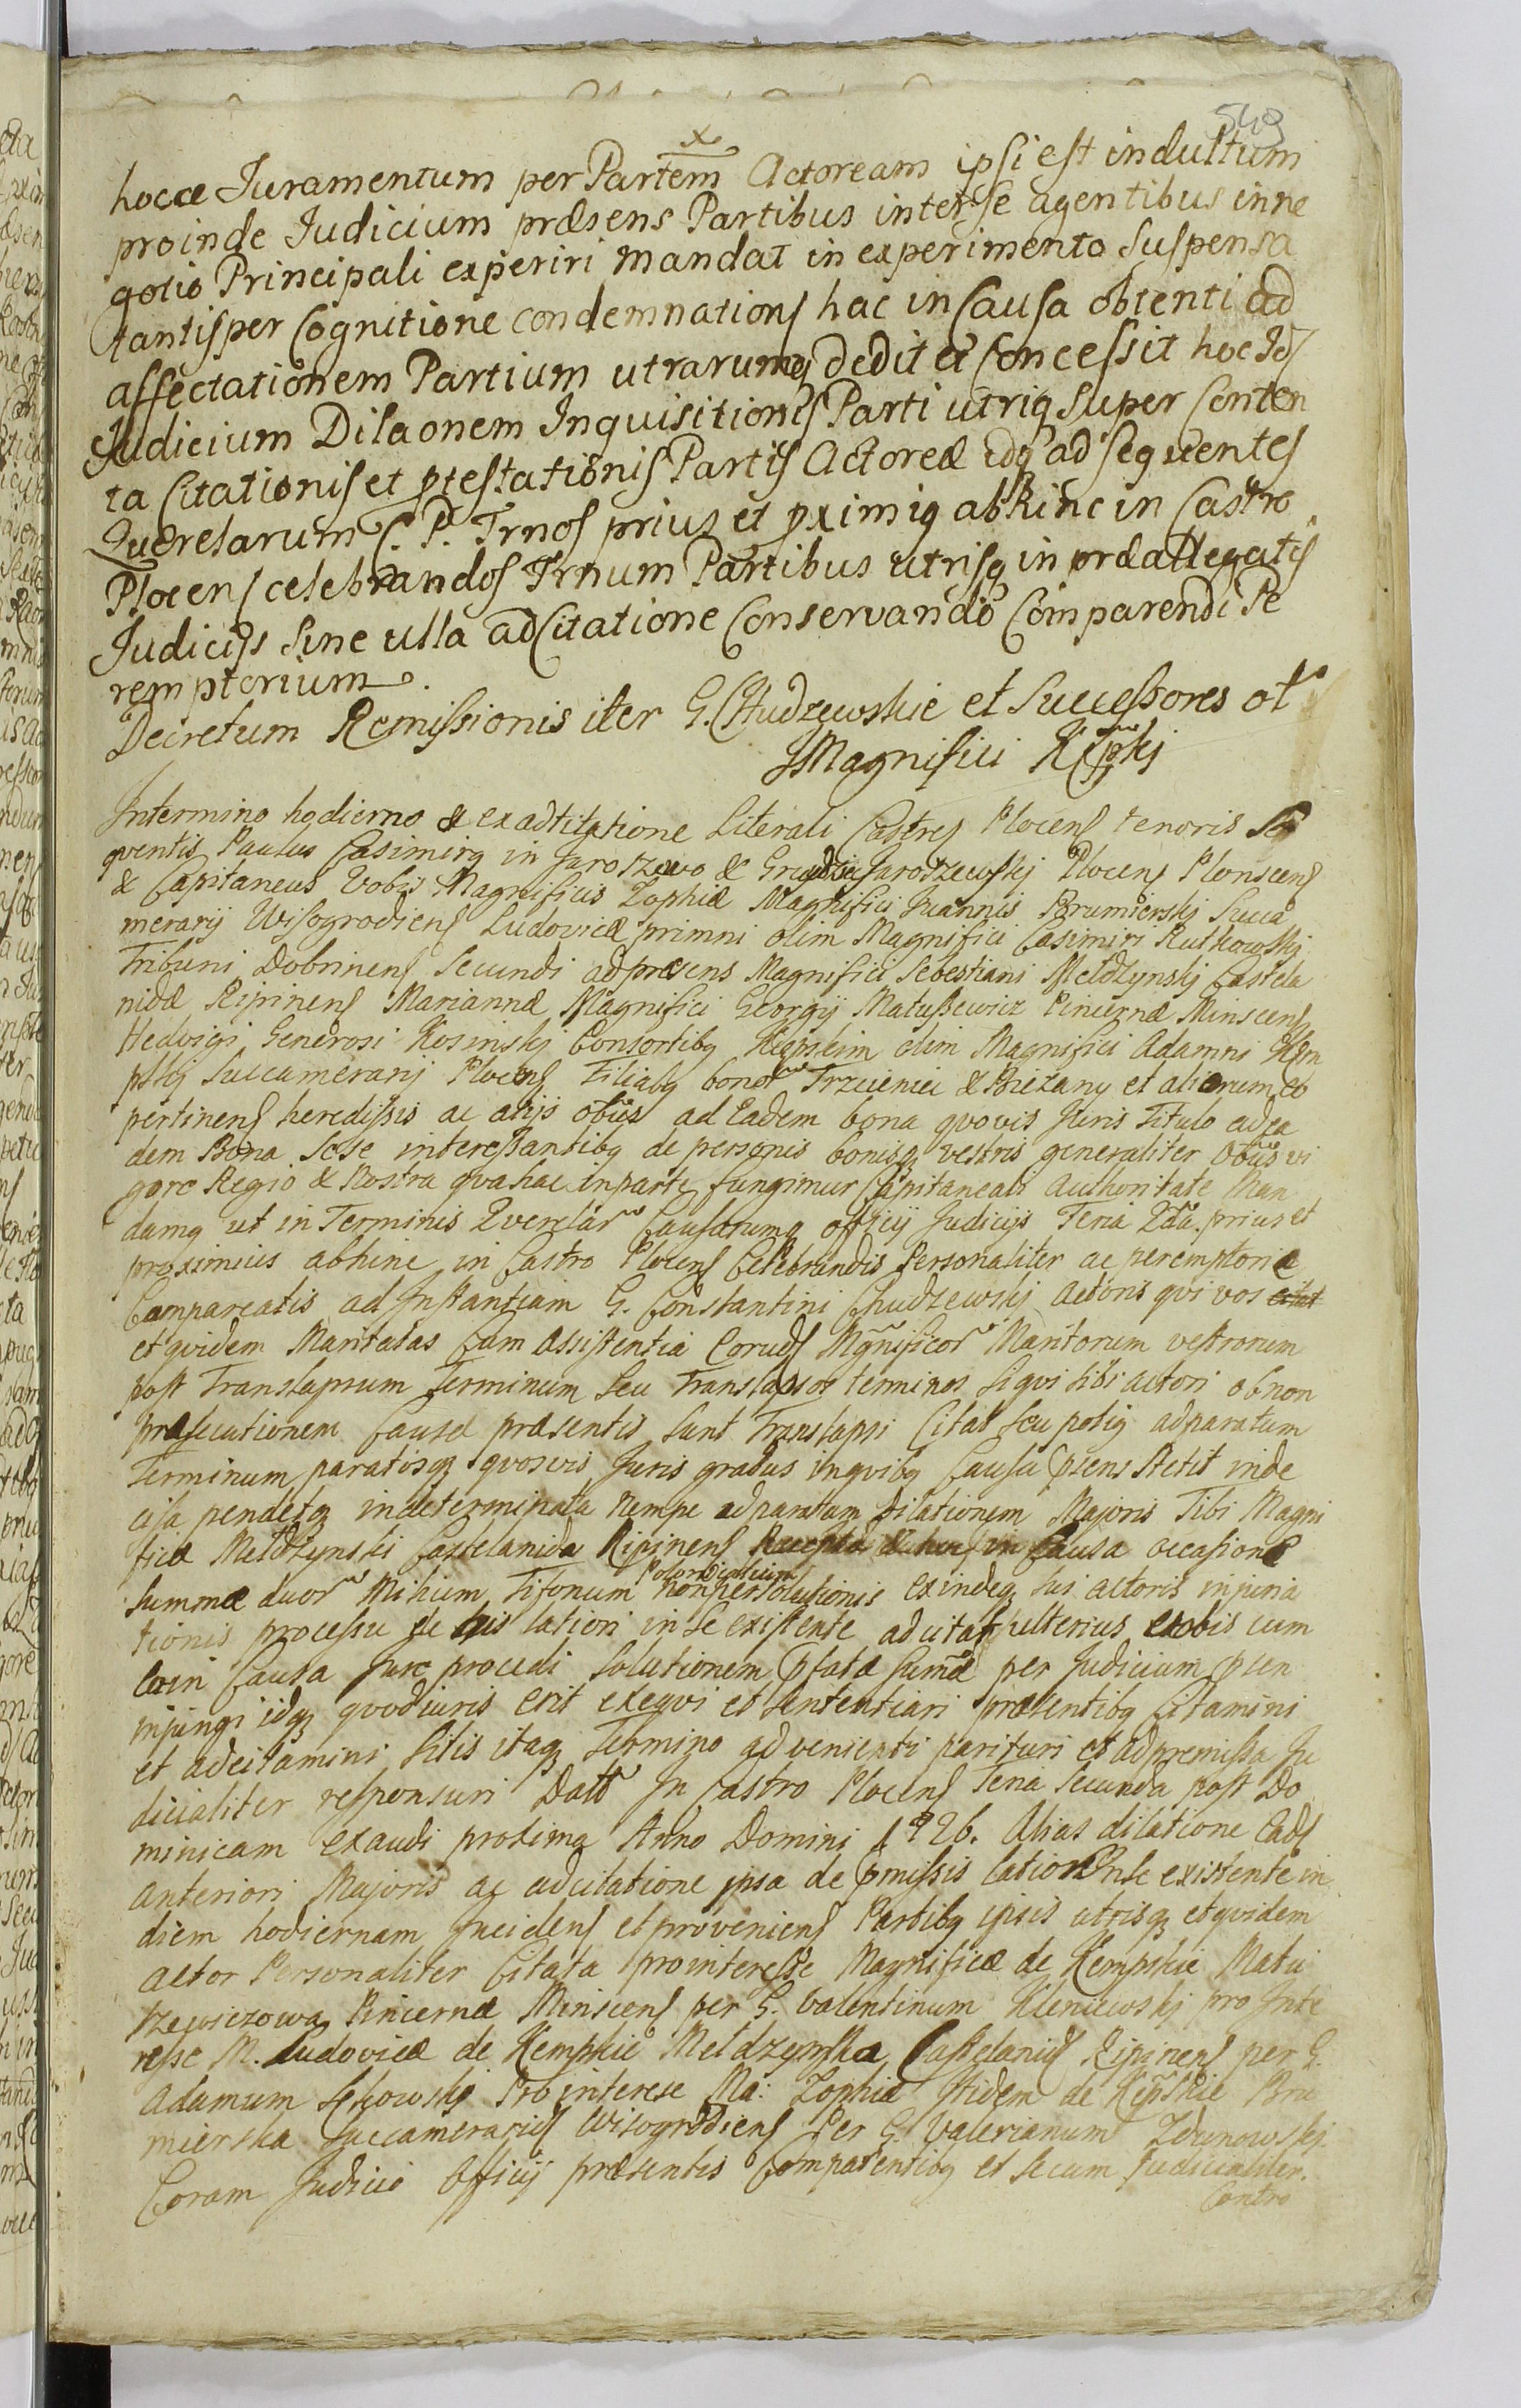 549
hocce Iuramentum per Partem Actoream ipsi est indultum
proinde Iudicium præsens Partibus inter se agentibus inne
gotio Principali experiri mandat in experimento Suspensa
tantisper Cognitione condemnationis hac in Causa obtenti ad
affectationem Partium utrarumq dedit et Concessit hoc Id
Iudicium Dilaonem Inquisitionis Parti utriq Super Conten
ta Citationis et ptestationis Partis Actoreæ idq ad sequentes
Querelarum C. P. Trnos prius et pximiq abhinc in Castro
Plocens celebrandos Trnum Partibus utrisq in præallegatis
Iudicijs Sine ulla adCitatione Conservando Comparendi Pe
remptorium.
Decretum Remissionis iter G. Chudzewskie et Successores ol
Magnifici Kępskj
Intermino hodierno & exadcitatione Literali Castres Plocens tenoris Se
quentis Paulus Casimirq in Jaroszewo & Grudsie Jaroszewskj Plocens Plonscens
& Capitaneus Vobis Magnificis Zophiæ Magnifici Juannis Brumierskj Succa
merarij Wisogrodiens Ludovicæ primni olim Magnifici Casimiri Rutkowskj
Tribuni Dobrinens Secundi adpræsens Magnifici Sebestiani Mełdzynskj Castela
nidæ Ripinens Mariannæ Magnifici Georgij Matuszewicz Pincernæ Minscens
Hedvigi Generosi Kosinskj Consortibq Kępskim olim Magnifici Adamni Kem
pskj Succamerarij Plocens Filiabq bonor Trzcieniec & Brezany et aliorum eo
pertinens heredissis ac alijs obus ad Eadem bona quovis Juris Titulo adea
dem Bona Sese interessantibq de personis bonisq vestris generaliter Obus vi
gore Regio & Nostra qua hac inparte fungimur Capitaneali Authoritate Man
damq ut in Terminis Querelar Causarumq officij Judicijs Feria 2da prius et
proximius abhinc in Castro Plocens Celebrandis Personaliter ac peremptorie
Compareatis ad Instantiam G. Constantini Chudzewskj Actoris qui vos citat
et quidem Maritatas Cum Assistentia Corunds Mgnificor Maritorum vestrorum
post Translapsum Terminum Seu Translapsos terminos Siqui Sibi actori obnon
præsecutionem Causæ præsentis Sunt Translapsi Citat Seu potiq adparatum
Terminum paratosq quosvis Juris gradus inquibq Causa psens Stetit inde
cisa pendetq indeterminata nempe adparatam Dilationem Majoris Tibi Magni
ficæ Mełdzynski Castelanida Ripinens Recepta in Causa occasione
Summæ duor Milium Tifonum Polonicalium nonpersolutionis exindeq Sui actoris injuria
tionis processu de his lationi in Se existente adcitat ulterius vobis cum
ea in Causa Jure procedi Solutionem pfatæ Sumæ per Judicium psen
injungi idq quodiuris erit exequi et Sententiari præsentibq Citamini
et adcitamini Sitis itaq Termino advenienti parituri et adpremissa Ju
dicialiter responsuri Datt In Castro Plocens Feria Secunda post Do
minicam Exaudi proxima Anno Domini 1726. Alias dilatione Eads
anteriori Majoris ac adcitatione ipsa de pmissis lation Inse existente in
diem hodiernam Incidens et proveniens Partibq ipsis utrisq et quidem
actor Personaliter Citata prointeresse Magnificæ de Kempskie Matu
szewiczowa Pincernæ Minscens per G. Valentinum Kleniewskj pro Inte
resse M. Ludovicæ de Kempskie Mełdzynska Castelanids Ripinens per G.
Adamum Sękowskj Pro interese Ma: Zophiæ Itidem de Kępskie Bru
mierska Succamerarids Wisogrodiens Per G. Valerianum Zdunowskj
Coram Judicio Officij præsentis Comparentibq et Secum Judicialiter
Contro